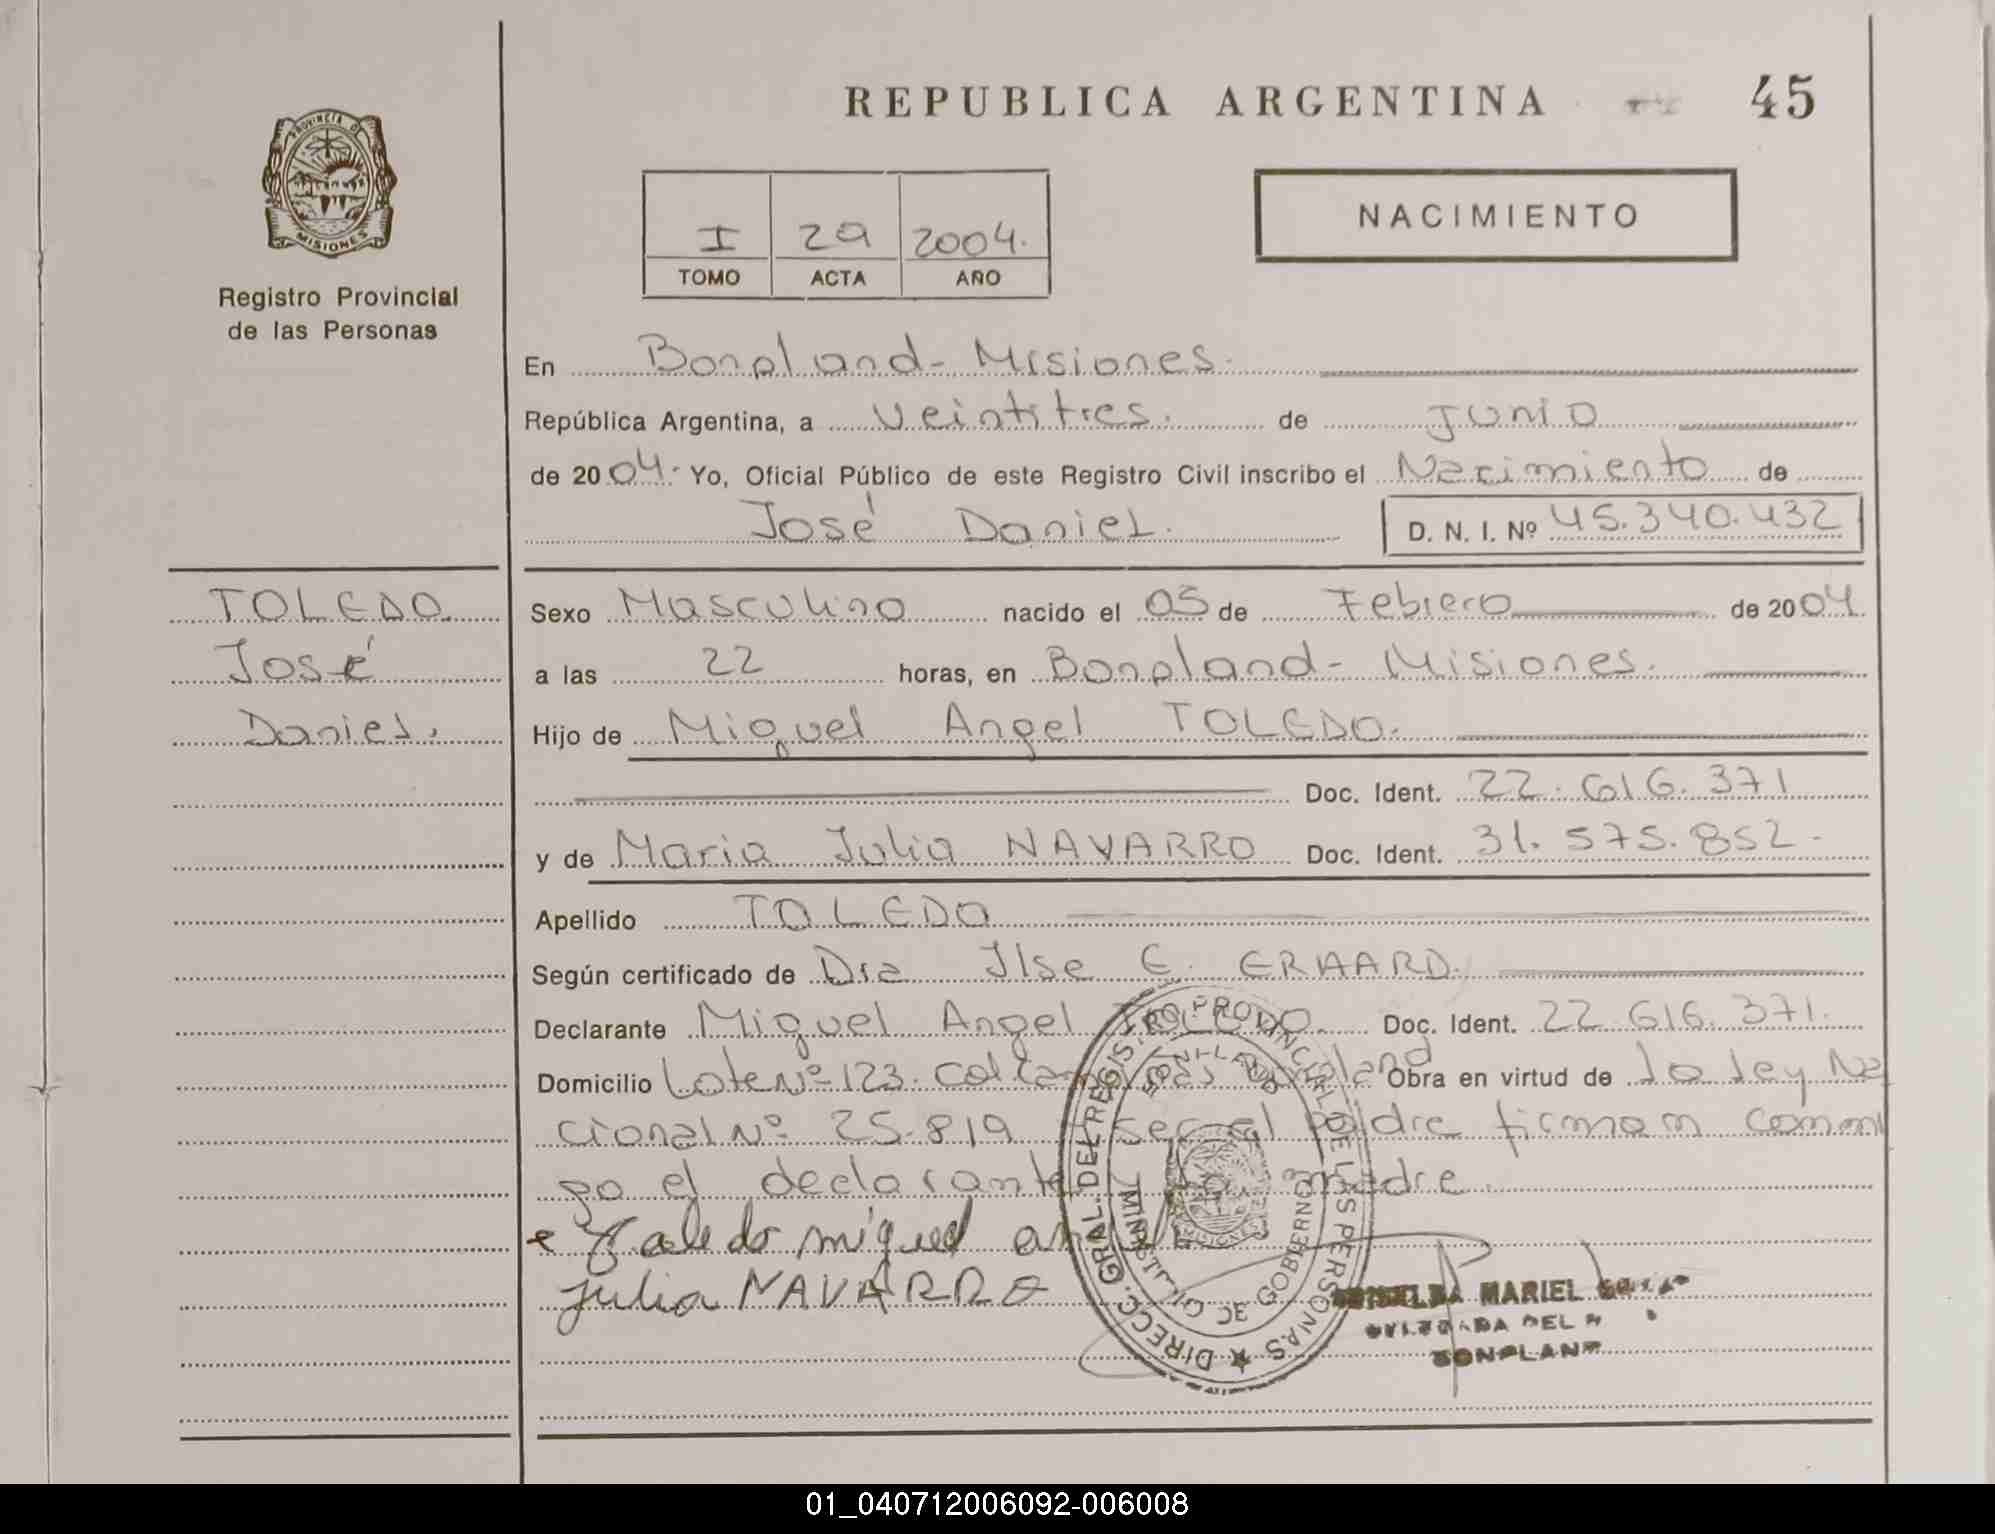 REPUBLICA ARGENTINA
45
PROVINCIA DE
MISIONES
Registro Provincial
de las Personas
I 29 2004.
TOMO ACTA AÑO
NACIMIENTO
En Bonpland - Misiones.
República Argentina, a veintitres. de Junio
de 2004. Yo, Oficial Público de este Registro Civil inscribo el Nacimiento de
José Daniel. D. N. I. Nº 45.340.432
TOLEDO
José
Daniel.
Sexo Masculino nacido el 05 de Febrero de 2004.
a las 22 horas, en Bonpland - Misiones.
Hijo de Miguel Angel TOLEDO.
Doc. Ident. 22.616.371
y de Maria Julia NAVARRO Doc. Ident. 31.575.852.-
Apellido TOLEDO
Según certificado de Dra Ilse E. ERHARD.
Declarante Miguel Angel TOLEDO. Doc. Ident. 22.616.371.
Domicilio Lote Nº 123. Col. Obra en virtud de la ley Na
cional Nº 25.819 ser el padre firman conmi
go el declarante madre.
Toledo miguel
Julia NAVARRO
DIRECC. GRAL. DEL REGISTRO PROVINCIAL DE LAS PERSONAS
GOBIERNO
MISIONES
MARIEL
DEL
BONPLAND
01_040712006092-006008